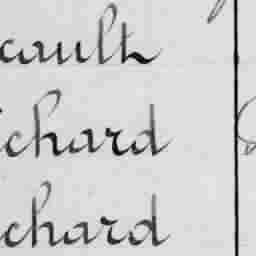 cault
ichard
ichard